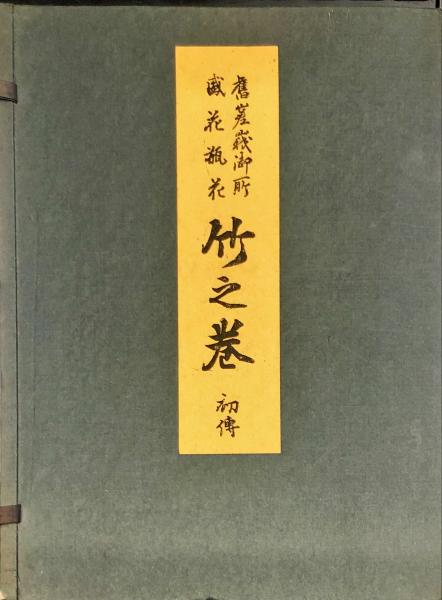 舊嵯峨御所
盛花瓶花
竹之巻
初傳